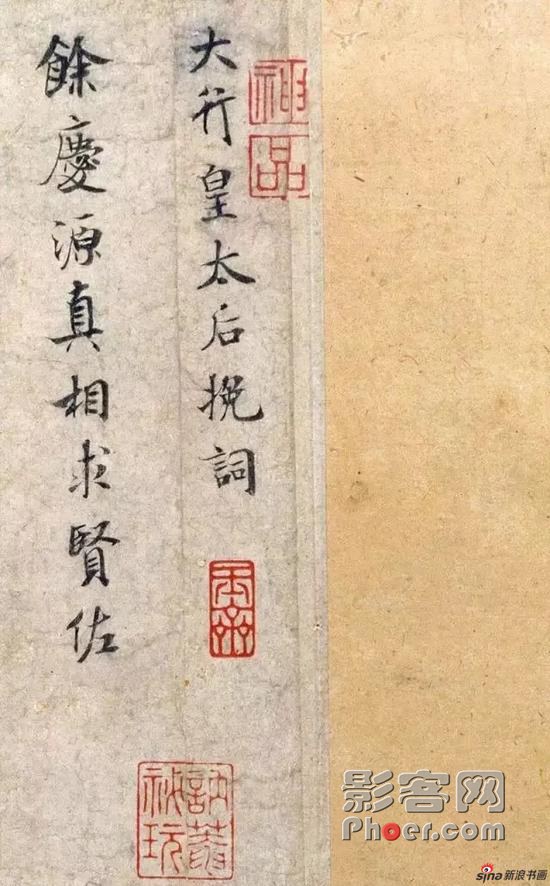 大行皇太后挽詞
餘慶源真相求賢佐
神品
影客网
Phoer.com
sina新浪书画